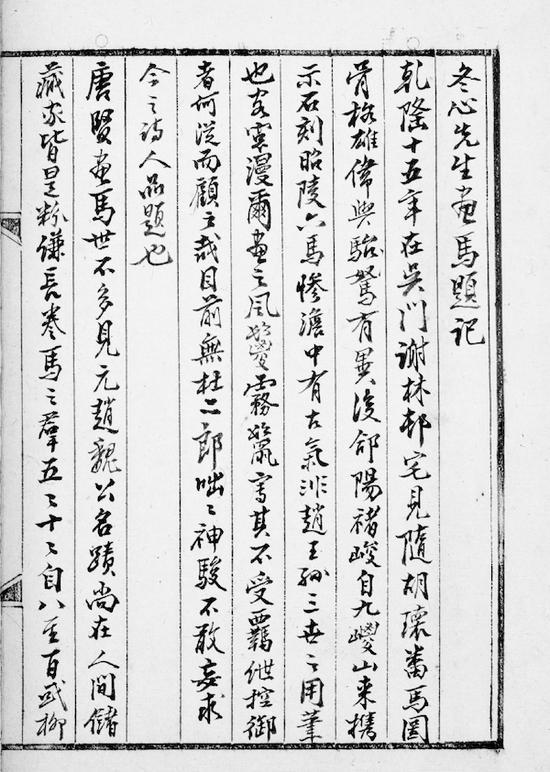 冬心先生畫馬題記
乾隆十五年在吳門謝林邨宅見隨胡瓌畨馬圖
骨格雄偉與駘駑有異後郃陽褚峻自九嵕山来攜
示石刻昭陵六馬慘澹中有古氣非趙王孫三世之用筆
也客窓漫爾畫之風鬉霧鬣寫其不受羈紲控御
者何從而顧之哉目前無杜二郎咄〻神駿不敢妄求
今之詩人品題也
唐賢畫馬世不多見元趙魏公名蹟尚在人間儲
藏家皆是粉縑長卷馬之羣五〻十〻自八至百或柳